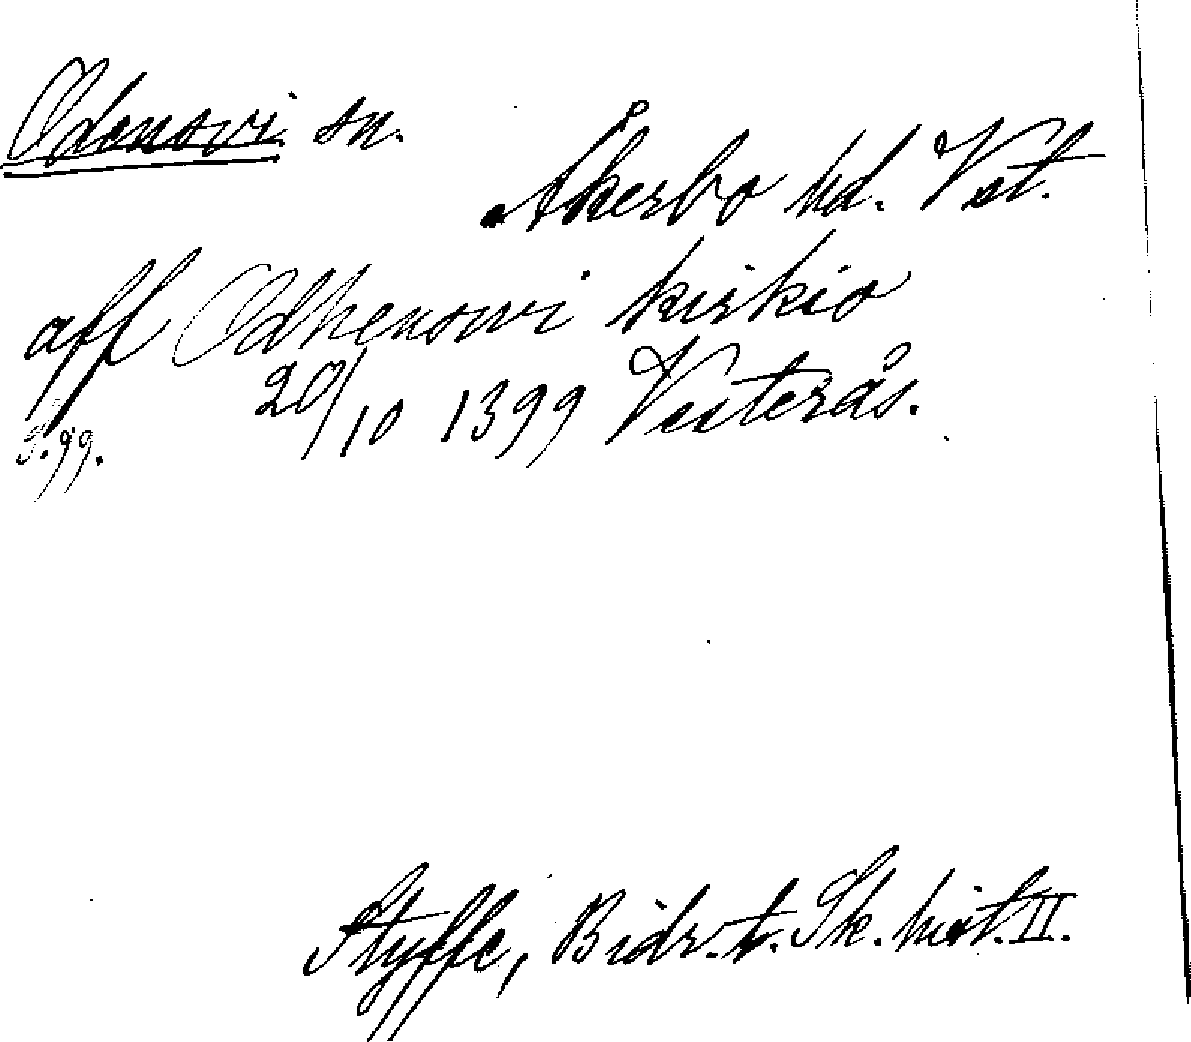 Odensvi sn.
Åkerbo hd. Vst.
aff Odhenswi kirkio
20/10 1399 Vesterås.
s. 99.
Styffe, Bidr. t. Sk. hist. II.